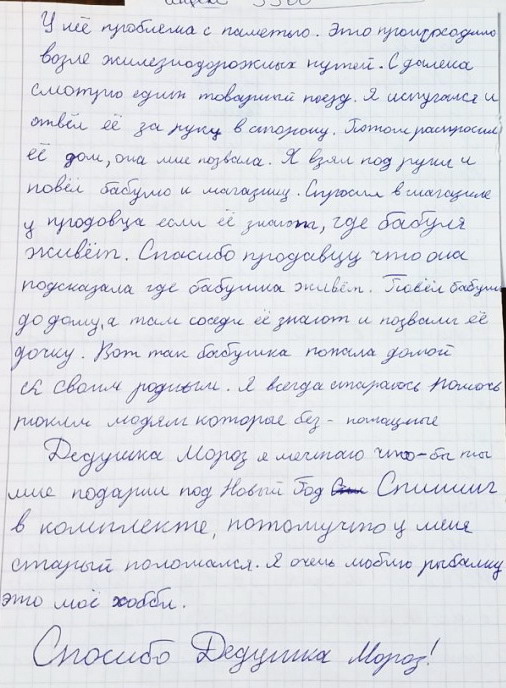 У неё проблема с паметью. Это происходило
возле жилезнодорожных путей. С далека
смотрю един товарный поезд. Я испугался и
отвёл её за руку в сторону. Потом распросил
её дом, она мне позвала. Я взял под руки и
повёл бабулю к магазину. Спросил в магазине
у продовца если её знают, где бабуля
живёт. Спасибо продавцу что она
подсказала где бабушка живёт. Повёл бабушк
до дому, а там соседи её знают и позвали её
дочку. Вот так бабушка попала домой
к своим родным. Я всегда стараюсь помочь
таким людям которые без-помащные
Дедушка Мороз я мечтаю что-бы ты
мне подарил под Новый Год Спининг
в комплекте, потомучто у меня
старый поломался. Я очень люблю рыбалку
это моё хобби.
Спосибо Дедушка Мороз!